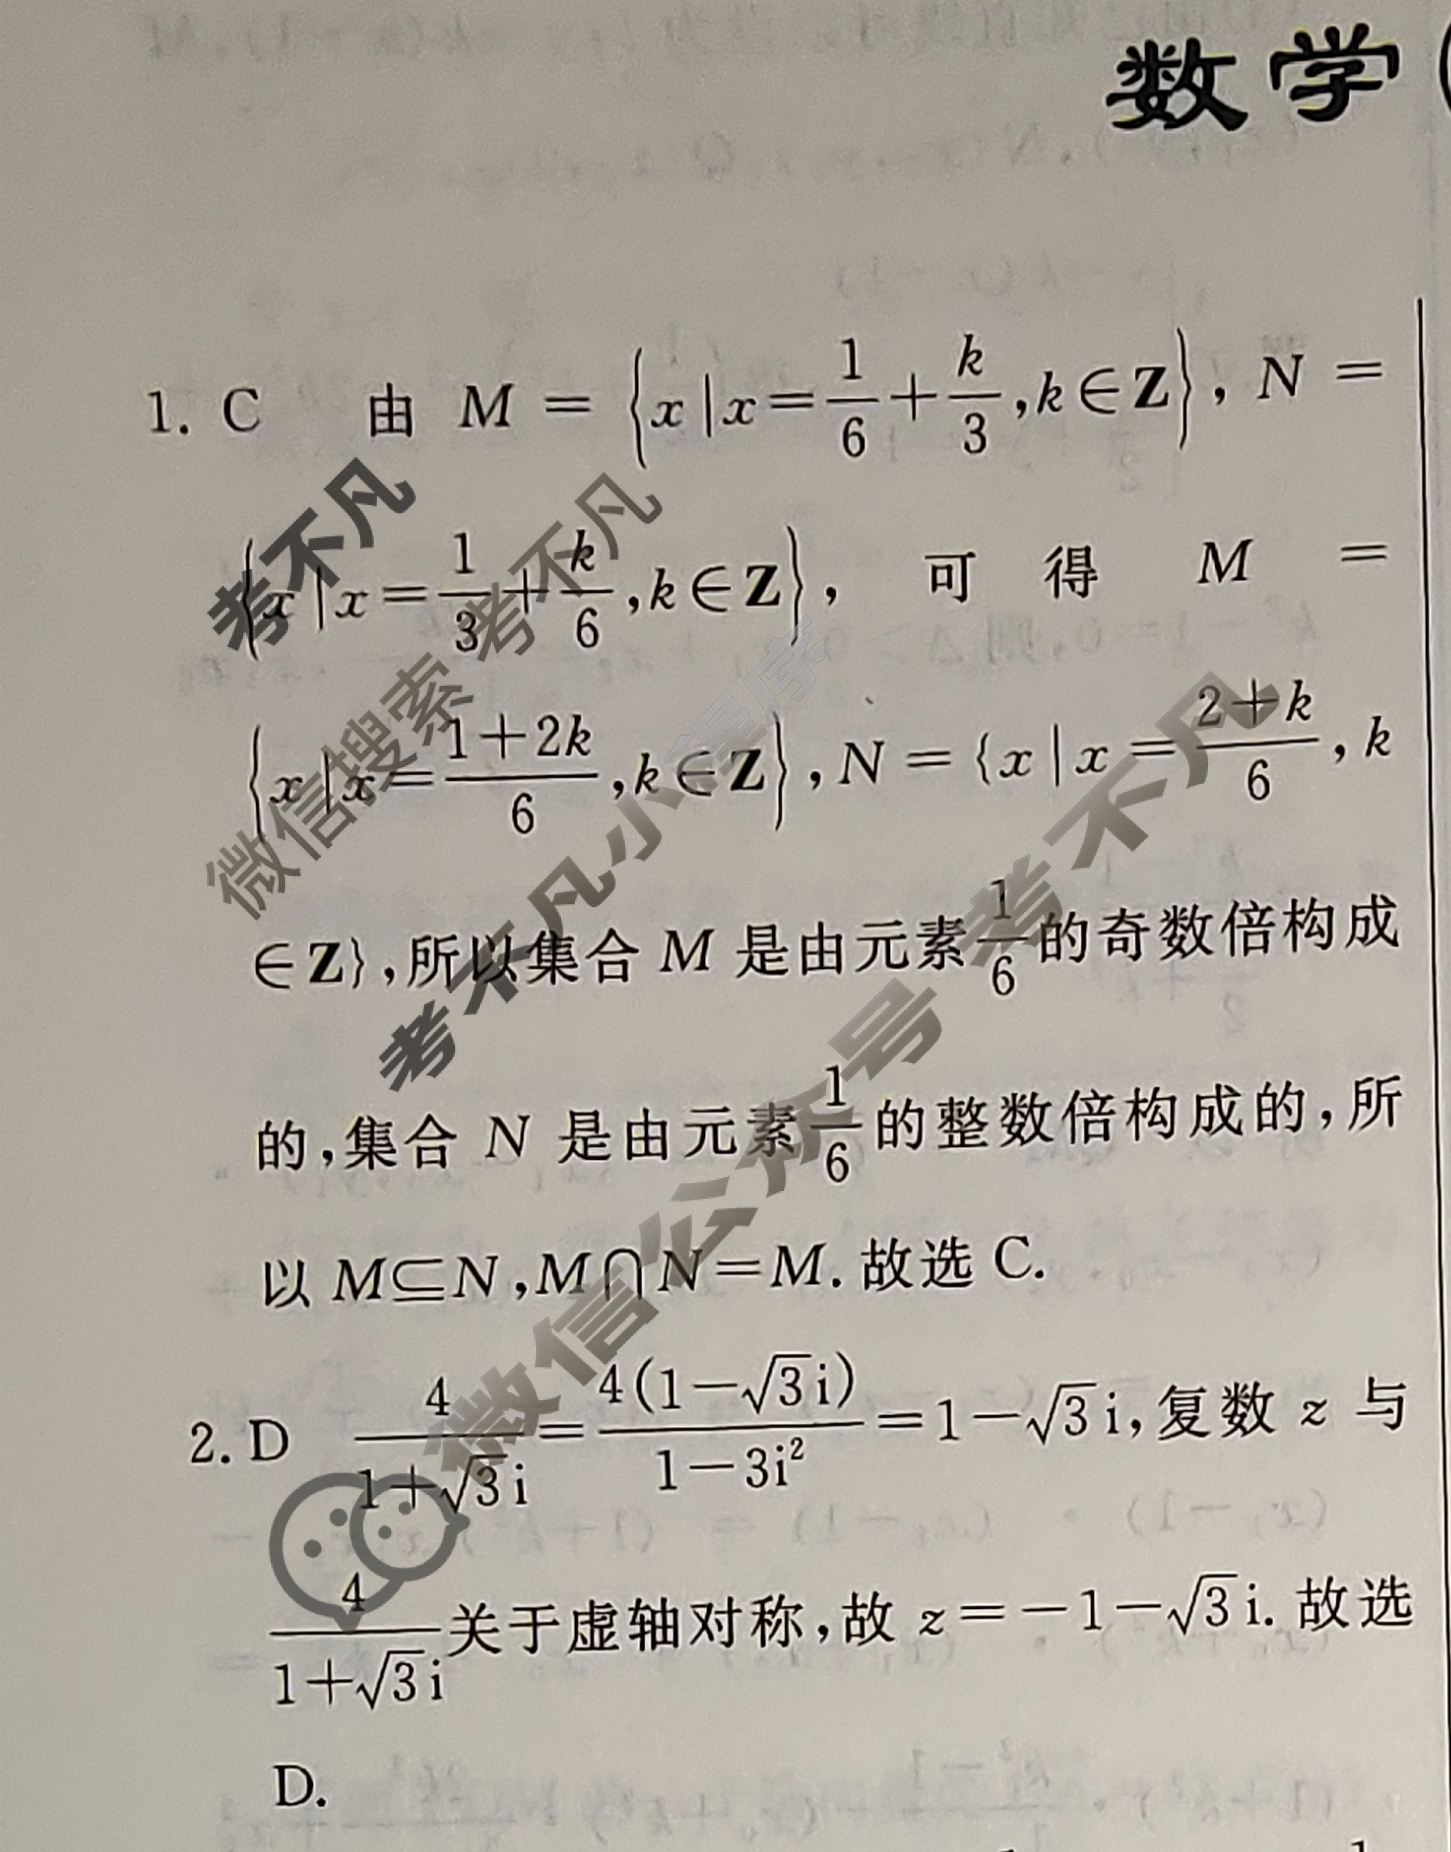 数学
1. C 由 M = {x|x=1/6+k/3,k∈Z}, N =
{x|x=1/3+k/6,k∈Z}, 可 得 M =
{x|x=(1+2k)/6,k∈Z},N={x|x=(2+k)/6,k
∈Z},所以集合 M 是由元素1/6的奇数倍构成
的,集合 N 是由元素1/6的整数倍构成的,所
以 M⊆N,M∩N=M. 故选 C.
2. D 4/(1+√3i)=4(1-√3i)/(1-3i²)=1-√3i,复数 z 与
4/(1+√3i)关于虚轴对称,故 z=-1-√3i. 故选
D.
考不凡
微信搜索 考不凡
考不凡小程序
微信公众号 考不凡